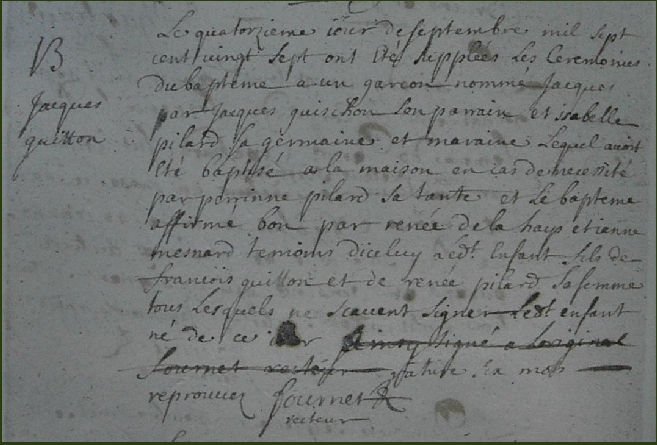 B
Jacques
quitton
Le quatorzieme iour de septembre mil sept
cent vingt sept ont Eté supplées Les Ceremonies
du baptême a un garcon nommé Jacques
par Jacques quischon son parrain et isabelle
pilard sa germaine et maraine Lequel avoit
Eté baptisé a la maison en cas de necessité
par perrinne pilard sa tante et Le bapteme
affirmé bon par renée de la haye etienne
mesnard temoins diceluy a edt. Enfant fils de
francois quitton et de renée pilard sa femme
tous Lesquels ne scavent signer Ledt enfant
né de ce iour ainsy signé a Loriginal
fournet recteur six mos
reprouvez fournet
recteur